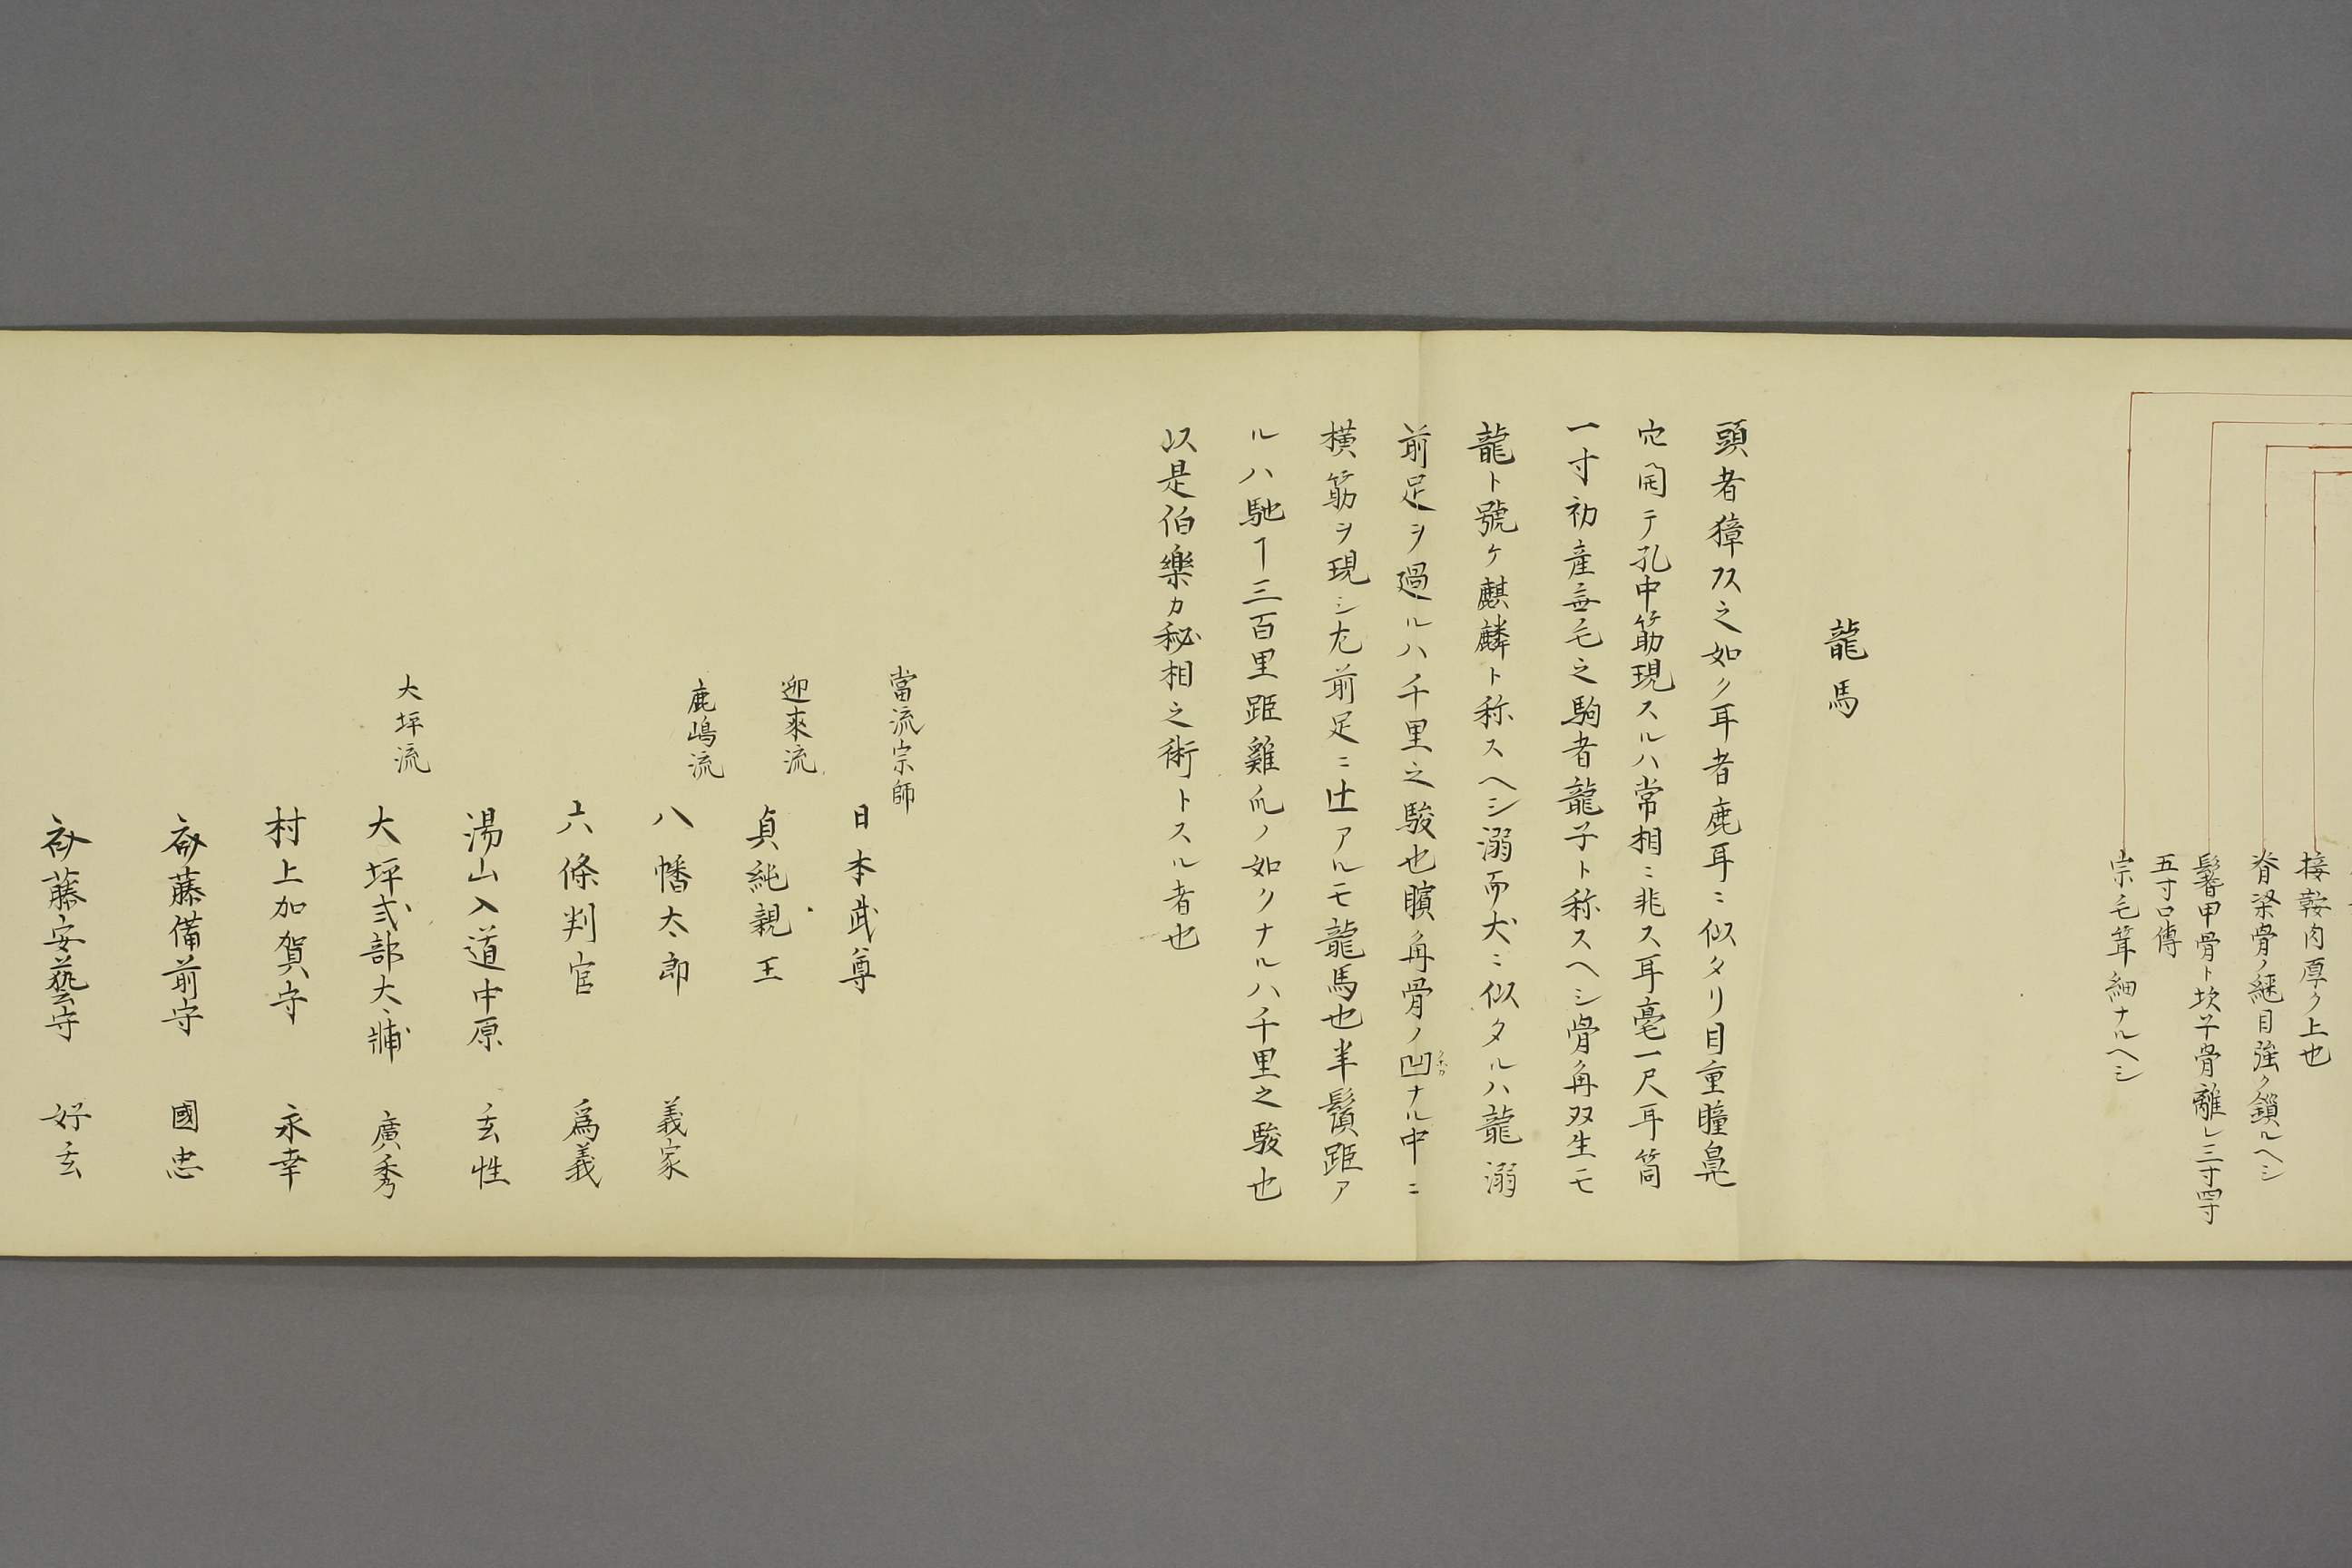 接鞍肉厚ク上也
脊梁骨ノ継目強ク鎖ルヘシ
鬐甲骨ト坎竿骨離レ三寸四寸
五寸口傳
宗毛茸細ナルヘシ
龍馬
頭者獐ノス之如ク耳者鹿耳ニ似タリ目重瞳鼻
穴開テ孔中筋現スルハ常相ニ非ス耳毫一尺耳筒
一寸初産無毛之駒者龍子ト称スヘシ骨角双生モ
龍ト號ケ麒麟ト称スヘシ溺而犬ニ似タルハ龍溺
前足ヲ過ルハ千里之駿也臏角骨ノ凹ナル中ニ
横筋ヲ現シ左前足ニ㐧アルモ龍馬也半鬢距ア
ルハ馳ヿ三百里距雞爪ノ如クナルハ千里之駿也
以是伯樂カ秘相之術トスル者也
當流宗師
日本武尊
迎來流
貞純親王
鹿嶋流
八幡太郎 義家
六條判官 爲義
湯山入道中原 玄性
大坪流
大坪式部大輔 廣秀
村上加賀守 永幸
斎藤備前守 國忠
斎藤安藝守 好玄